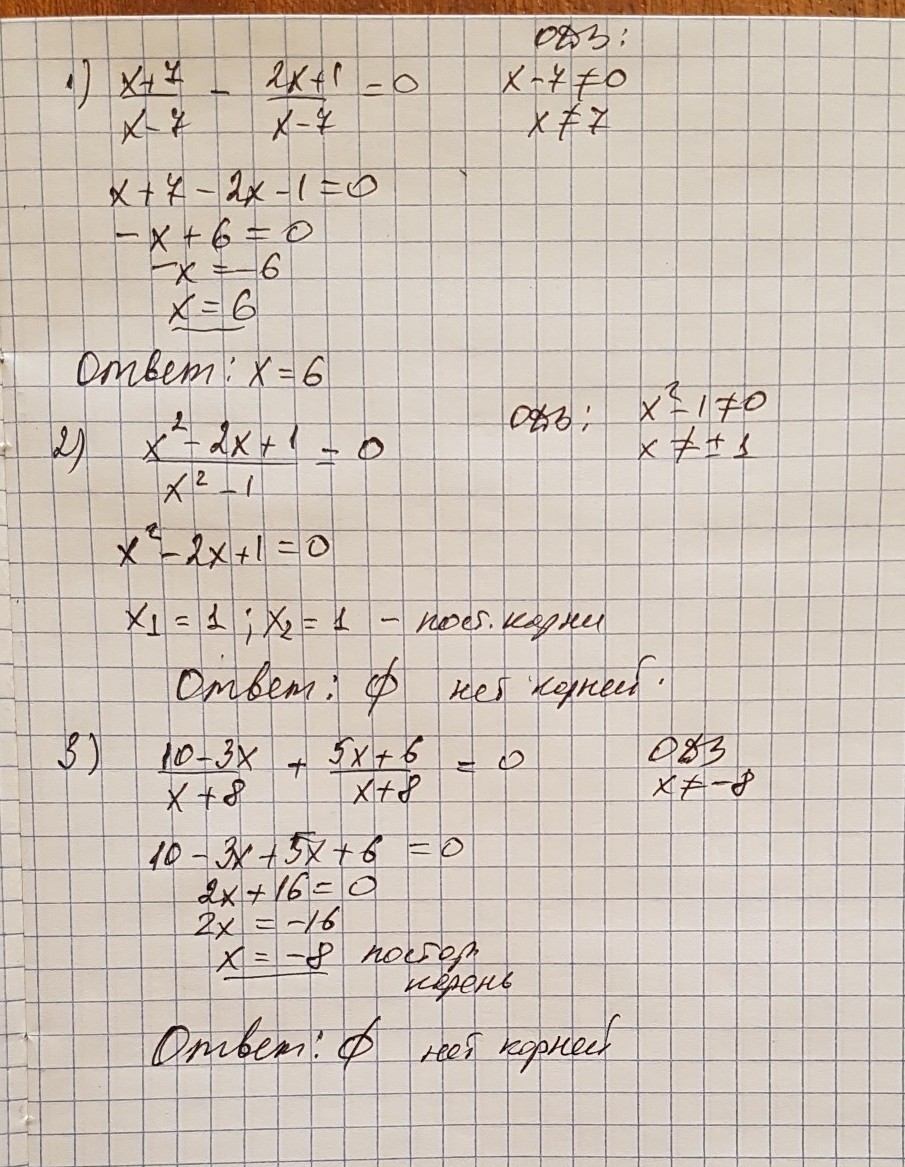 ОДЗ:
1) (x+7)/(x-7) - (2x+1)/(x-7) = 0 x-7≠0
x≠7
x+7-2x-1=0
-x+6=0
-x=-6
x=6
Ответ: x=6
2) (x²-2x+1)/(x²-1) = 0 ОДЗ: x²-1≠0
x≠±1
x²-2x+1=0
x₁=1; x₂=1 - пост. корни
Ответ: ϕ нет корней.
3) (10-3x)/(x+8) + (5x+6)/(x+8) = 0 ОДЗ
x≠-8
10-3x+5x+6=0
2x+16=0
2x=-16
x=-8 постор
корень
Ответ: ϕ нет корней